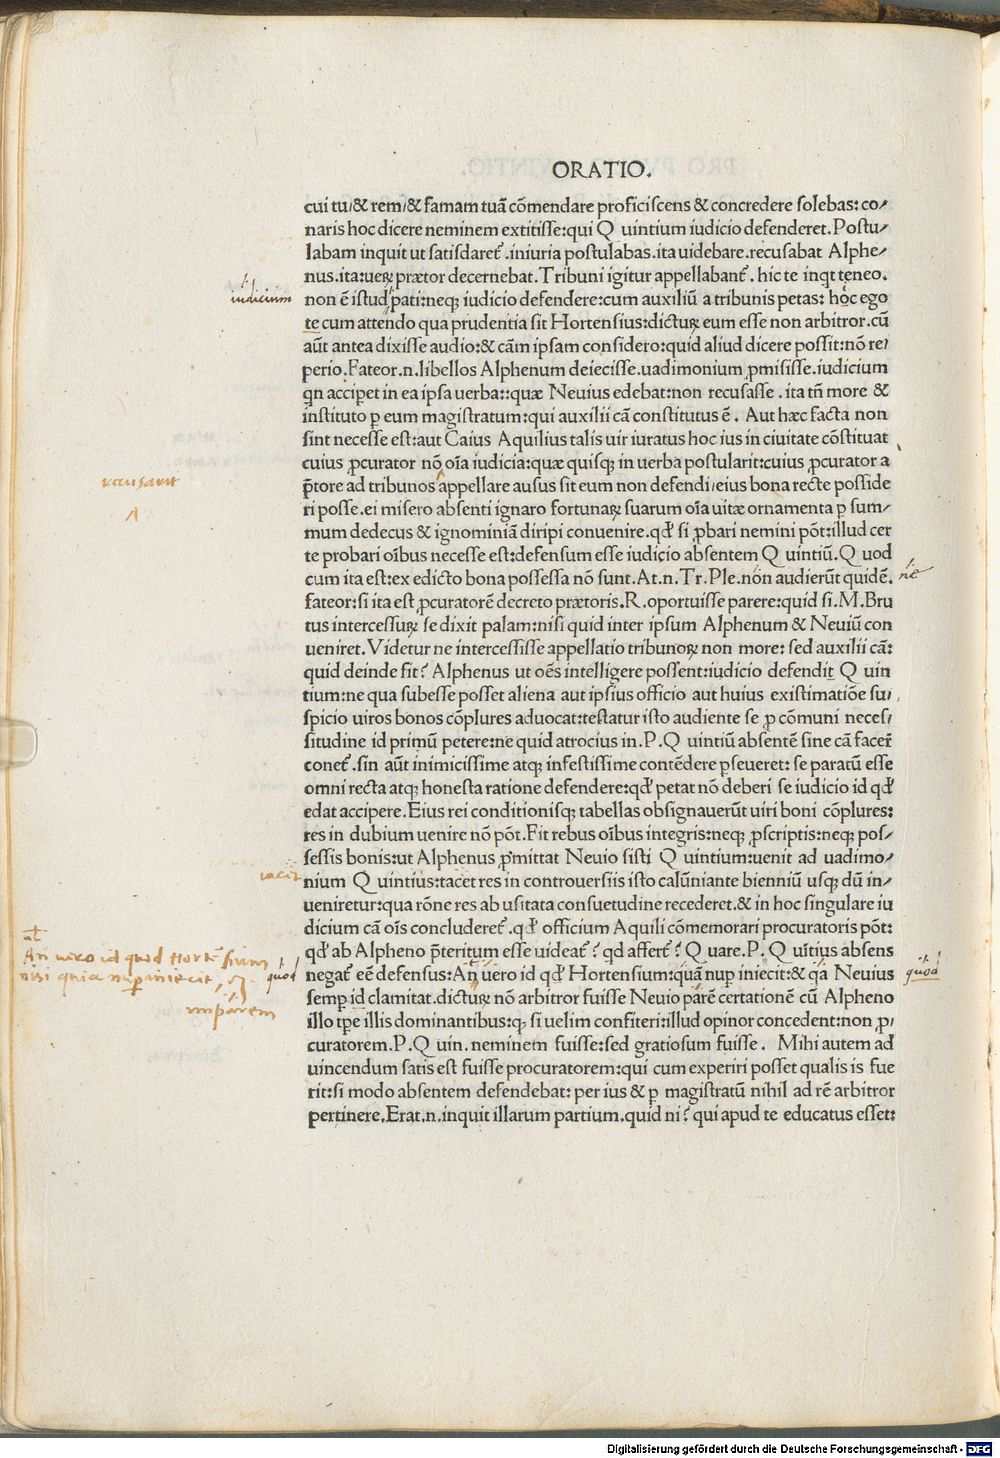 ORATIO.
cui tu/& rem/& famam tuā cōmendare proficiscens & concredere solebas: co/
naris hoc dicere neminem extitisse:qui Q uintium iudicio defenderet.Postu/
labam inquit ut satisdaret᷒.iniuria postulabas.ita uidebare.recusabat Alphe/
nus.ita:ueꝝ prætor decernebat.Tribuni igitur appellabant᷒.hic te inqt teneo.
iudicium
non ē istud pati:neqꝫ iudicio defendere:cum auxiliū a tribunis petas: hoc ego
te cum attendo qua prudentia sit Hortensius:dictuꝝ eum esse non arbitror.cū
aūt antea dixisse audio:& cām ipsam considero:quid aliud dicere possit:nō re/
perio.Fateor.n.libellos Alphenum deiecisse.uadimonium ꝓmisisse.iudicium
qn accipet in ea ipsa uerba::quæ Neuius edebat:non recusasse.ita tñ more &
instituto ꝑ eum magistratum:qui auxilii cā constitutus ē. Aut hæc facta non
sint necesse est:aut Caius Aquilius talis uir iuratus hoc ius in ciuitate cōstituat
cuius ꝓcurator nō oīa iudicia:quæ quisqꝫ in uerba postularit:cuius ꝓcurator a
recusarit
p̄tore ad tribunos appellare ausus sit eum non defendi/eius bona recte posside
ri posse.ei misero absenti ignaro fortunaꝝ suarum oīa uitæ ornamenta ꝑ sum/
mum dedecus & ignominiā diripi conuenire.qd̕ si ꝓbari nemini pōt:illud cer
te probari oībus necesse est:defensum esse iudicio absentem Q uintiū.Q uod
cum ita est:ex edicto bona possessa nō sunt.At.n.Tr.Ple.non audierūt quidē.
ne
fateor:si ita est ꝓcuratorē decreto prætoris.R.oportuisse parere:quid si.M.Bru
tus intercessuꝝ se dixit palam:nisi quid inter ipsum Alphenum & Neuiū con
ueniret.Videtur ne intercessisse appellatio tribunoꝝ non more: sed auxilii cā:
quid deinde fit? Alphenus ut oēs intelligere possent:iudicio defendit Q uin
tium:ne qua subesse posset aliena aut ipsius officio aut huius existimatiōe su/
spicio uiros bonos cōplures aduocat:testatur isto audiente se ꝓ cōmuni neces/
situdine id primū petere:ne quid atrocius in.P.Q uintiū absentē sine cā facer̄
conet᷒.sin aūt inimicissime atqꝫ infestissime contēdere ꝑseueret: se paratū esse
omni recta atqꝫ honesta ratione defendere:qd̕ petat nō deberi se iudicio id qd̕
edat accipere.Eius rei conditionisqꝫ tabellas obsignauerūt uiri boni cōplures:
res in dubium uenire nō pōt.Fit rebus oībus integris:neqꝫ ꝓscriptis:neqꝫ pos/
sessis bonis:ut Alphenus ꝓmittat Neuio sisti Q uintium:uenit ad uadimo/
nium Q uintius:tacet res in controuersiis isto calūniante bienniū usqꝫ dū in/
ueniretur:qua rōne res ab usitata consuetudine recederet.& in hoc singulare iu
dicium cā oīs concluderet᷒.qd̕ officium Aquili cōmemorari procuratoris pōt:
qd̕ ab Alpheno p̄teritum esse uideat᷒? qd affert᷒? Q uare.P.Q uītius absens
An uero id quod Hortēsium
nisi quia nuper iniecit,
quod
negat᷒ eē defensus:An uero id qd̕ Hortensium:quā nuꝑ iniecit:& qa Neuius
quod
semꝑ id clamitat.dictuꝝ nō arbitror fuisse Neuio parē certationē cū Alpheno
imparem
illo tꝑe illis dominantibus:qꝫ si uelim confiteri:illud opinor concedent:non ꝓ/
curatorem.P.Q uin.neminem fuisse:sed gratiosum fuisse. Mihi autem ad
uincendum satis est fuisse procuratorem:qui cum experiri posset qualis is fue
rit:si modo absentem defendebat: per ius & ꝑ magistratū nihil ad rē arbitror
pertinere.Erat.n.inquit illarum partium.quid ni? qui apud te educatus esset:
Digitalisierung gefördert durch die Deutsche Forschungsgemeinschaft - DFG